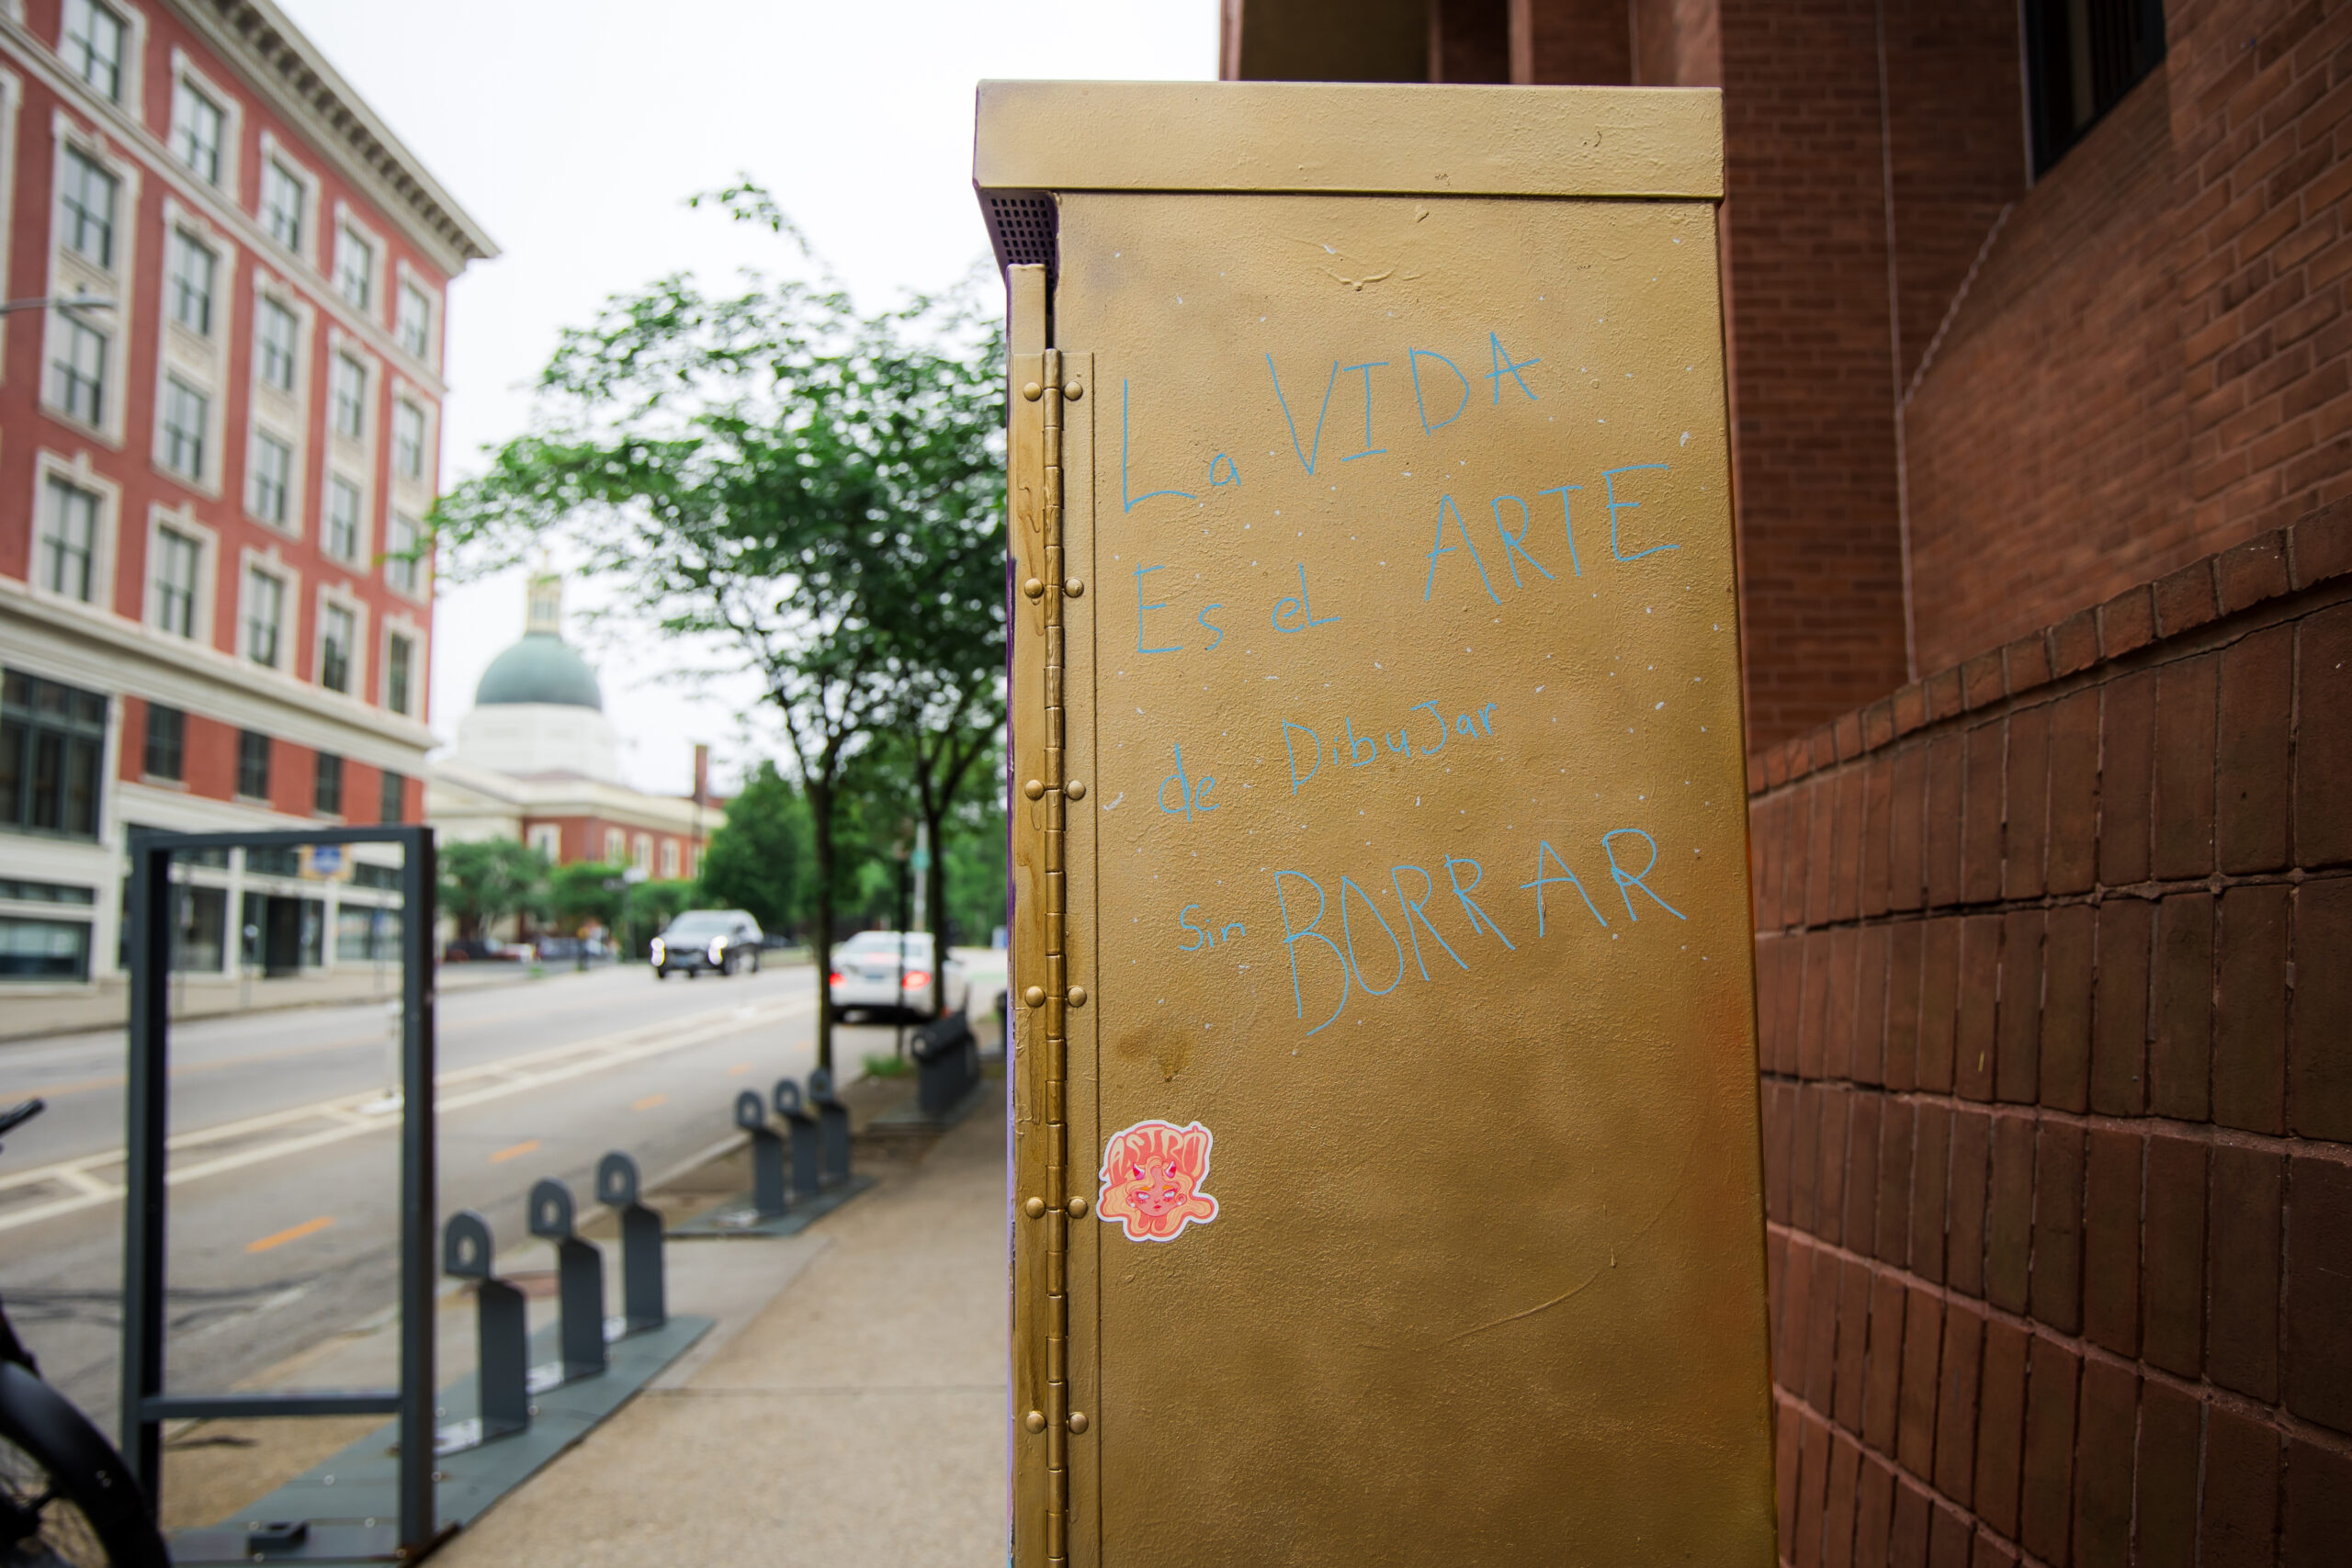 La VIDA
Es eL ARTE
de DibuJar
Sin BORRAR
ASTRO